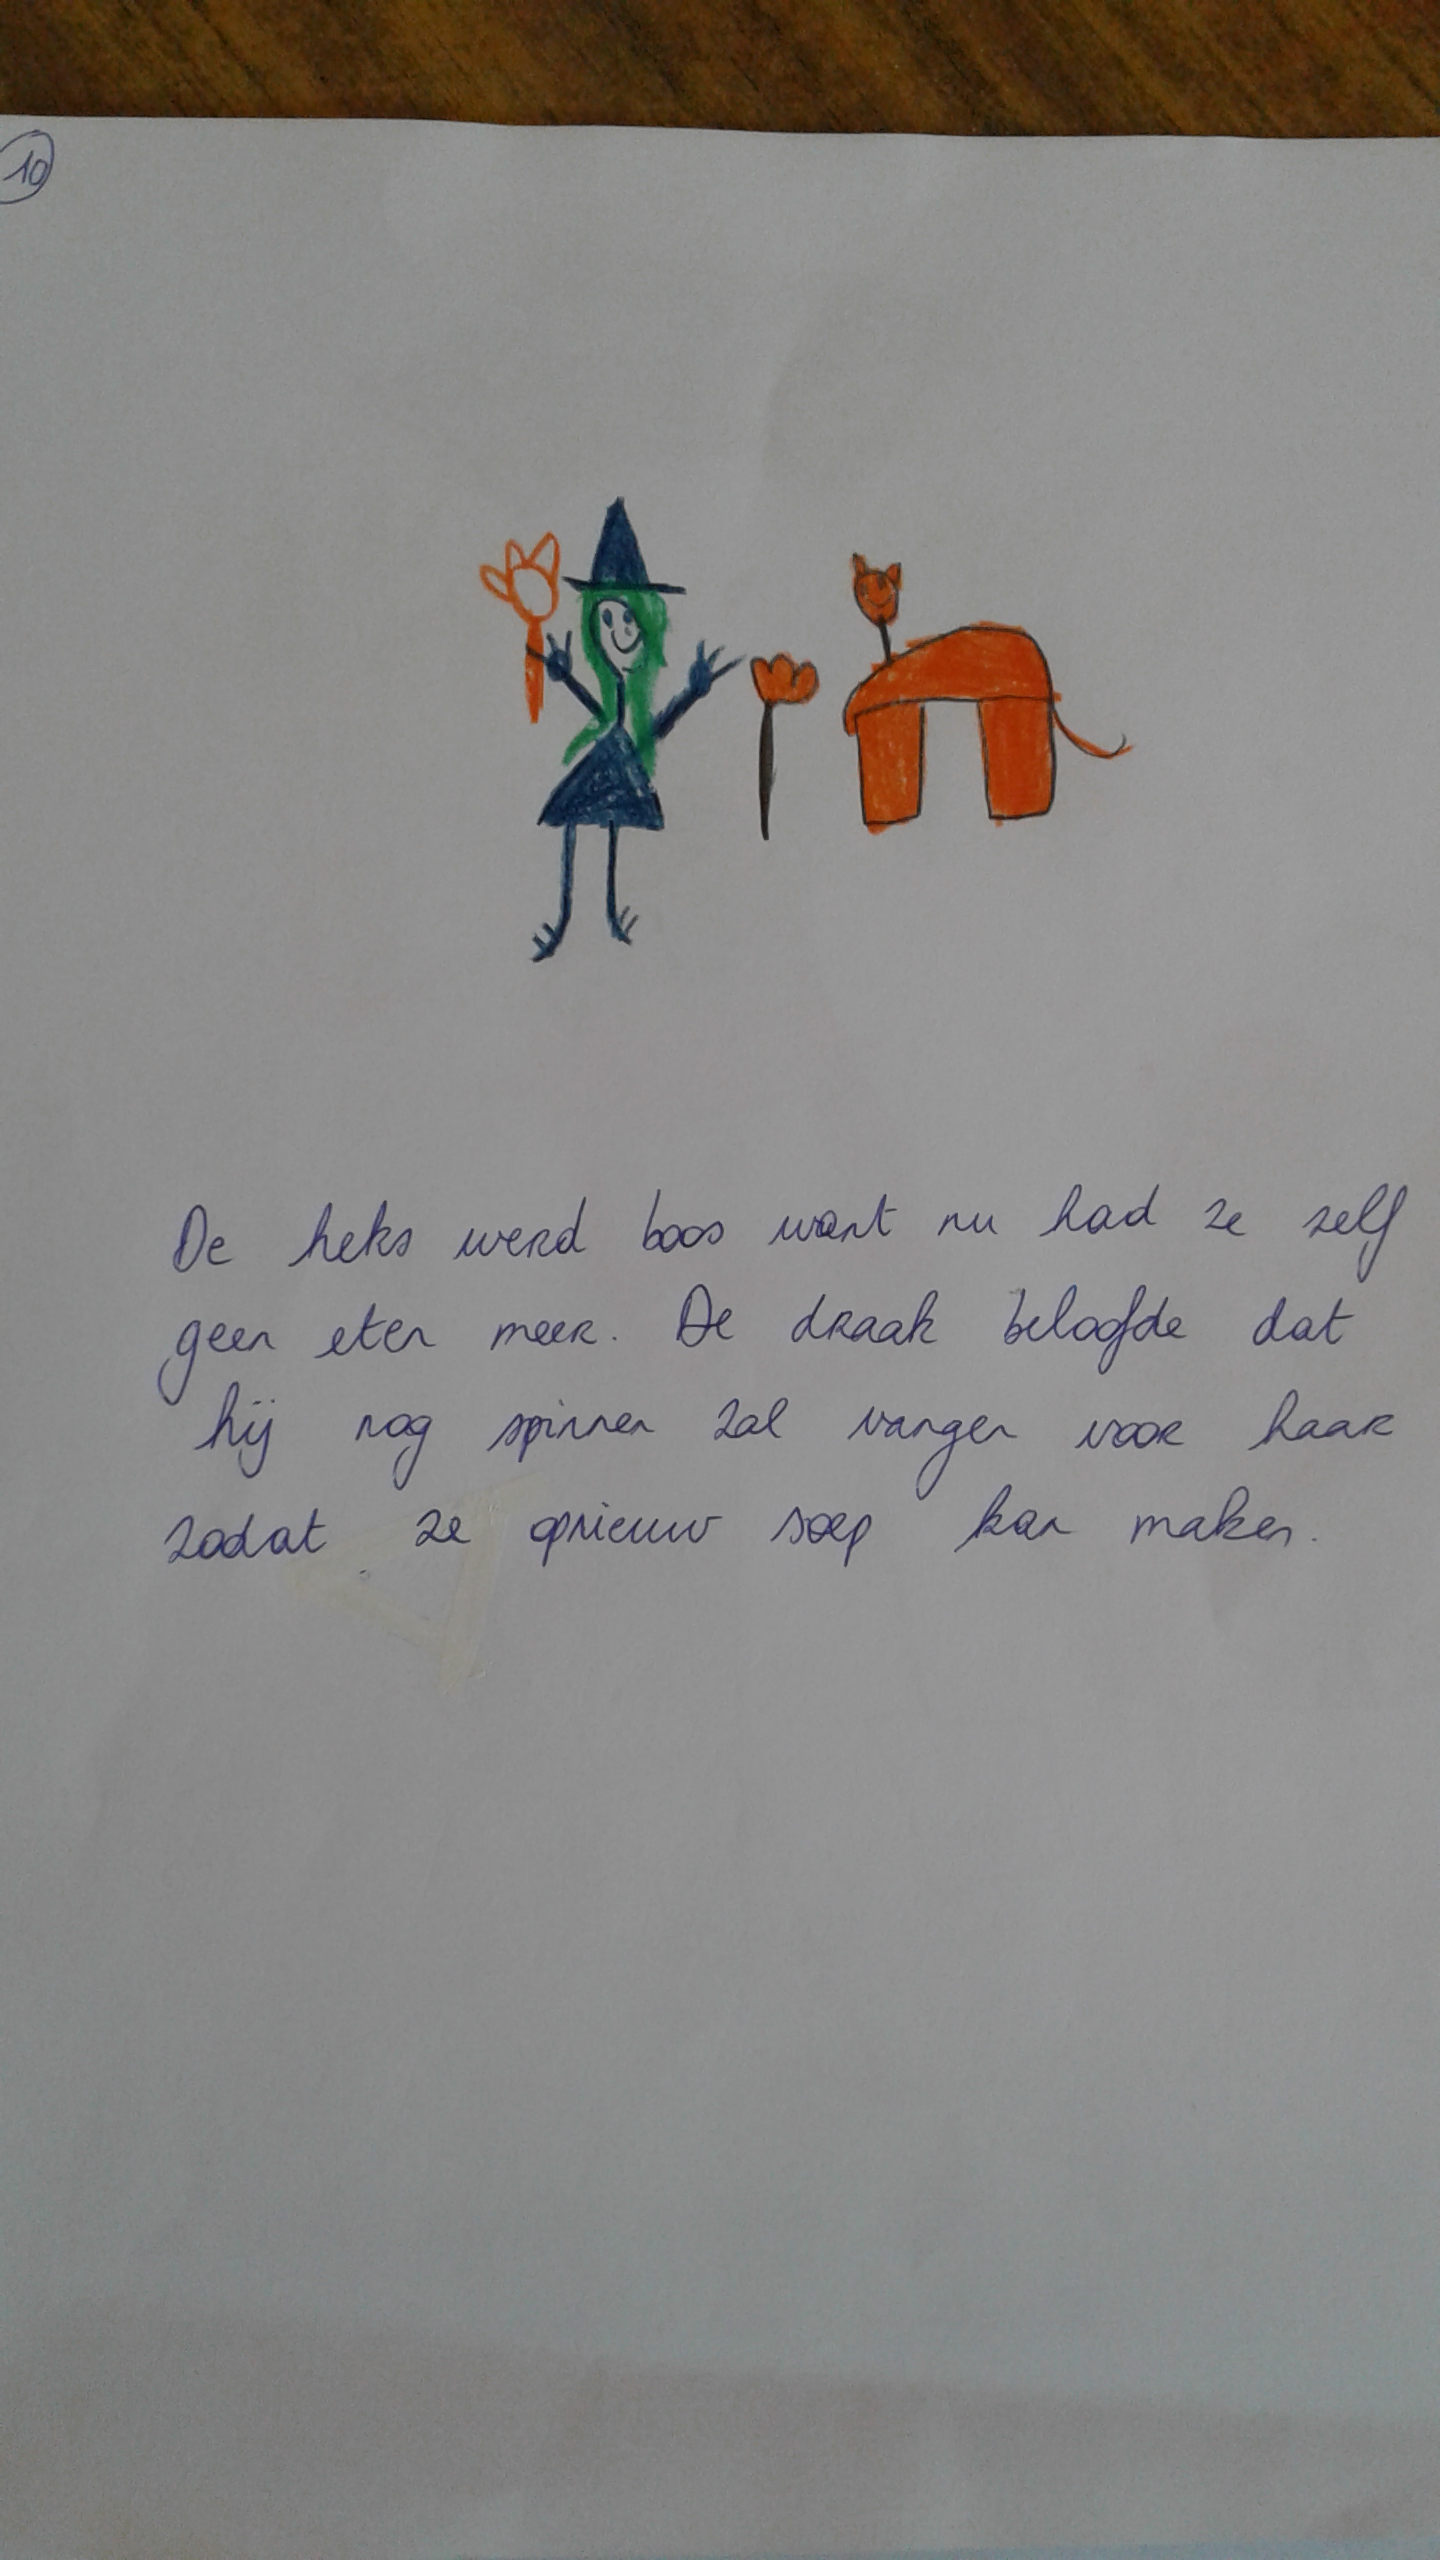 10
De heks werd boos want nu had ze zelf
geen eten meer. De draak beloofde dat
hij nog spinnen zal vangen voor haar
zodat ze opnieuw soep kan maken.